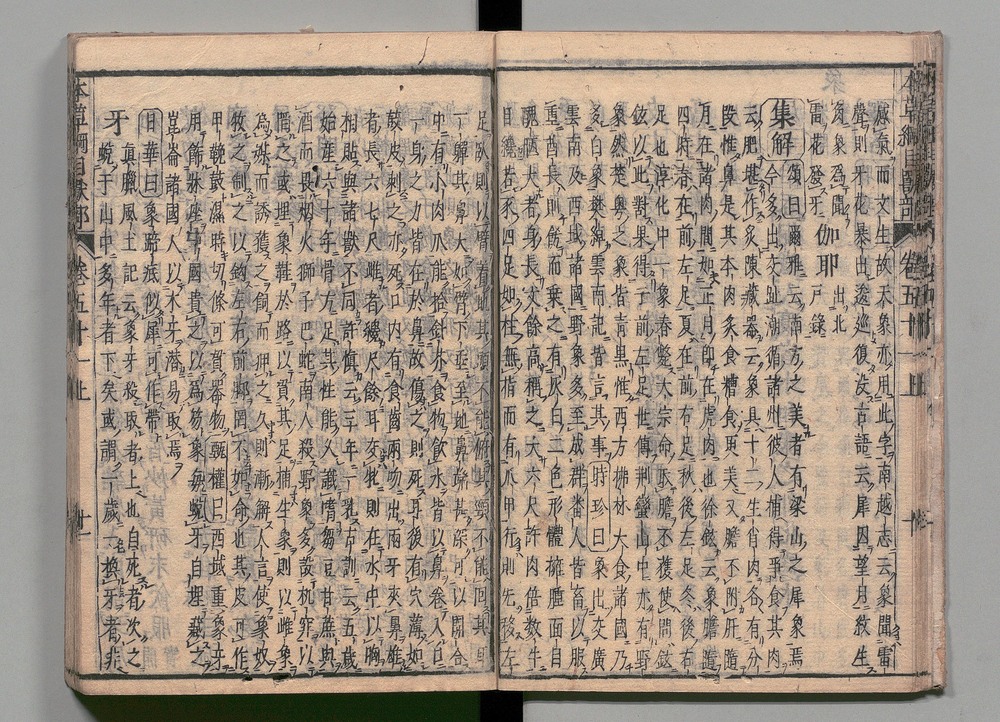 本草綱目獸部 卷五十一上
感氣而文生故天象亦用此字南越志云象聞雷
聲則牙花暴出逡巡復没古語云犀因望月紋生
角象爲聞 出北
雷花發牙 伽耶 戶錄
集解 頌曰爾雅云南方之美者有梁山之犀象焉
今多出交趾潮循諸州彼人捕得爭食其肉
云肥堪作炙陳藏器云象具十二生肖肉各有分
段惟鼻是其本肉炙食糟食更美又膽不附肝隨
月在諸肉間如正月即在虎肉也徐鉉云象膽隨
四時春在前左足夏在前右足秋後左足冬後右
足也淳化中一象春斃太宗命取膽不獲使問鉉
鉉以此對果得於前左足世傳荊蠻山中亦有野
象然楚粤之象皆青黑惟西方拂林大食諸國乃
多白象樊綽雲南記皆言其事時珍曰象出交廣
雲南及西域諸國野象多至成群番人皆畜以服
重酋長則飾而乘之有灰白二色形體擁腫面目
醜陋大者身長丈餘高稱之大六尺許肉倍數牛
目纔若豕四足如柱無指而有爪甲行則先移左
足臥則以臂着地其頭不能俯其頸不能回其耳
下軃其鼻大如臂下垂至地鼻端甚深可以開合
中有小肉爪能拾針芥食物飲水皆以鼻卷入口
一身之力皆在於鼻故傷之則死耳後有穴薄如
鼓皮刺之亦死口内有食齒兩吻出兩牙夾鼻雄
者長六七尺雌者纔尺餘耳交牝則在水中以胸
相貼與諸獸不同許慎云三年一乳古訓云五歲
始產六十年骨方足其性能久識嗜芻豆甘蔗與
酒而畏煙火獅子巴蛇南人殺野象多設机穽以
陷之或埋象鞋於路以貫其足捕生象則以雌象
為媒而誘獲之飼而狎之久則漸解人言使象奴
牧之制之以鈎左右前却罔不如命也其皮可作
甲鞔鼓濕時切條可貫器物甄權曰西域重象牙
用飾牀座中國貴之以為笏象每蛻牙自埋藏之
崑崙諸國人以木牙潛易取焉
日華曰象蹄底似犀可作帶
眞臘風土記云象牙殺取者上也自死者次之
牙 蛻于山中多年者下矣或謂一歲一換牙者非
本草綱目獸部 卷五十一上